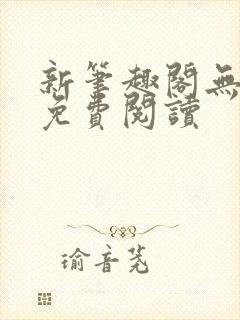 新筆趣閣無
免費閱讀
瑜音茪